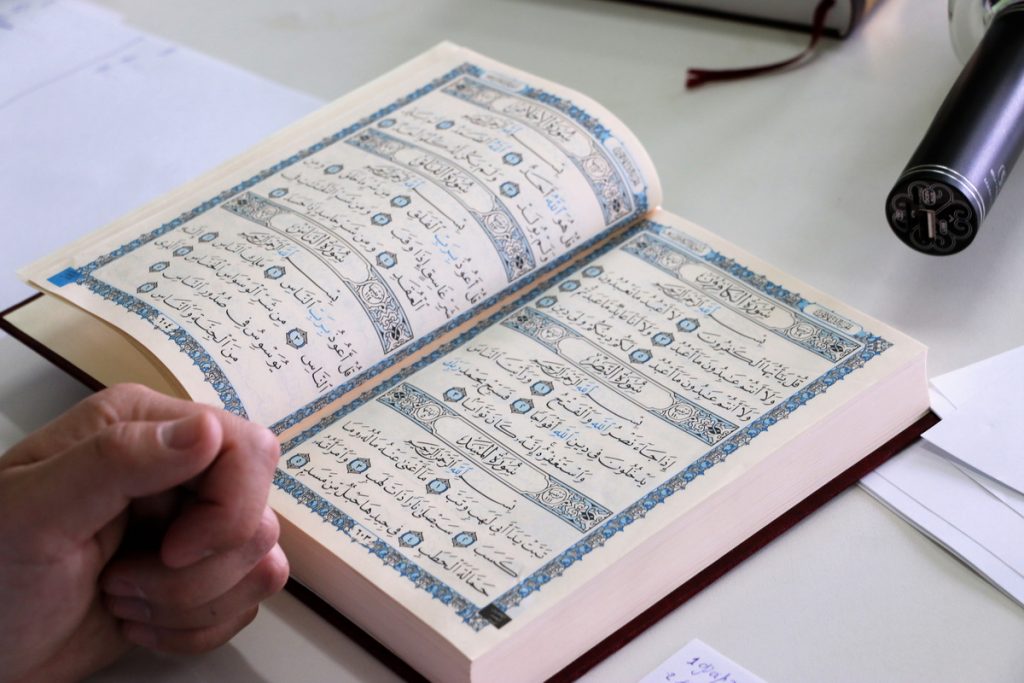 سُورَةُ الكَافِرُونَ
بِسْمِ اللَّهِ الرَّحْمَٰنِ الرَّحِيمِ
قُلْ يَٰٓأَيُّهَا ٱلْكَٰفِرُونَ ١ لَآ أَعْبُدُ مَا تَعْبُدُونَ ٢
وَلَآ أَنتُمْ عَٰبِدُونَ مَآ أَعْبُدُ ٣ وَلَآ أَنَا۠ عَابِدٌ مَّا عَبَدتُّمْ ٤
وَلَآ أَنتُمْ عَٰبِدُونَ مَآ أَعْبُدُ ٥ لَكُمْ دِينُكُمْ وَلِيَ دِينِ ٦
سُورَةُ النَّصْرِ
بِسْمِ اللَّهِ الرَّحْمَٰنِ الرَّحِيمِ
إِذَا جَآءَ نَصْرُ ٱللَّهِ وَٱلْفَتْحُ ١ وَرَأَيْتَ ٱلنَّاسَ
يَدْخُلُونَ فِى دِينِ ٱللَّهِ أَفْوَاجًا ٢ فَسَبِّحْ بِحَمْدِ رَبِّكَ
وَٱسْتَغْفِرْهُ إِنَّهُۥ كَانَ تَوَّابًۢا ٣
سُورَةُ المَسَدِ
بِسْمِ اللَّهِ الرَّحْمَٰنِ الرَّحِيمِ
تَبَّتْ يَدَآ أَبِى لَهَبٍ وَتَبَّ ١ مَآ أَغْنَىٰ عَنْهُ مَالُهُۥ وَمَا
كَسَبَ ٢ سَيَصْلَىٰ نَارًا ذَاتَ لَهَبٍ ٣ وَٱمْرَأَتُهُۥ
حَمَّالَةَ ٱلْحَطَبِ ٤ فِى جِيدِهَا حَبْلٌ مِّن مَّسَدٍۭ ٥
٦٠٣
سُورَةُ الإِخْلَاصِ
بِسْمِ اللَّهِ الرَّحْمَٰنِ الرَّحِيمِ
قُلْ هُوَ ٱللَّهُ أَحَدٌ ١ ٱللَّهُ ٱلصَّمَدُ ٢
لَمْ يَلِدْ وَلَمْ يُولَدْ ٣ وَلَمْ يَكُن لَّهُۥ كُفُوًا أَحَدٌۢ ٤
سُورَةُ الفَلَقِ
بِسْمِ اللَّهِ الرَّحْمَٰنِ الرَّحِيمِ
قُلْ أَعُوذُ بِرَبِّ ٱلْفَلَقِ ١ مِن شَرِّ مَا خَلَقَ ٢ وَمِن
شَرِّ غَاسِقٍ إِذَا وَقَبَ ٣ وَمِن شَرِّ ٱلنَّفَّٰثَٰتِ فِى
ٱلْعُقَدِ ٤ وَمِن شَرِّ حَاسِدٍ إِذَا حَسَدَ ٥
سُورَةُ النَّاسِ
بِسْمِ اللَّهِ الرَّحْمَٰنِ الرَّحِيمِ
قُلْ أَعُوذُ بِرَبِّ ٱلنَّاسِ ١ مَلِكِ ٱلنَّاسِ ٢ إِلَٰهِ
ٱلنَّاسِ ٣ مِن شَرِّ ٱلْوَسْوَاسِ ٱلْخَنَّاسِ ٤ ٱلَّذِى
يُوَسْوِسُ فِى صُدُورِ ٱلنَّاسِ ٥
مِنَ ٱلْجِنَّةِ وَٱلنَّاسِ ٦
٦٠٤